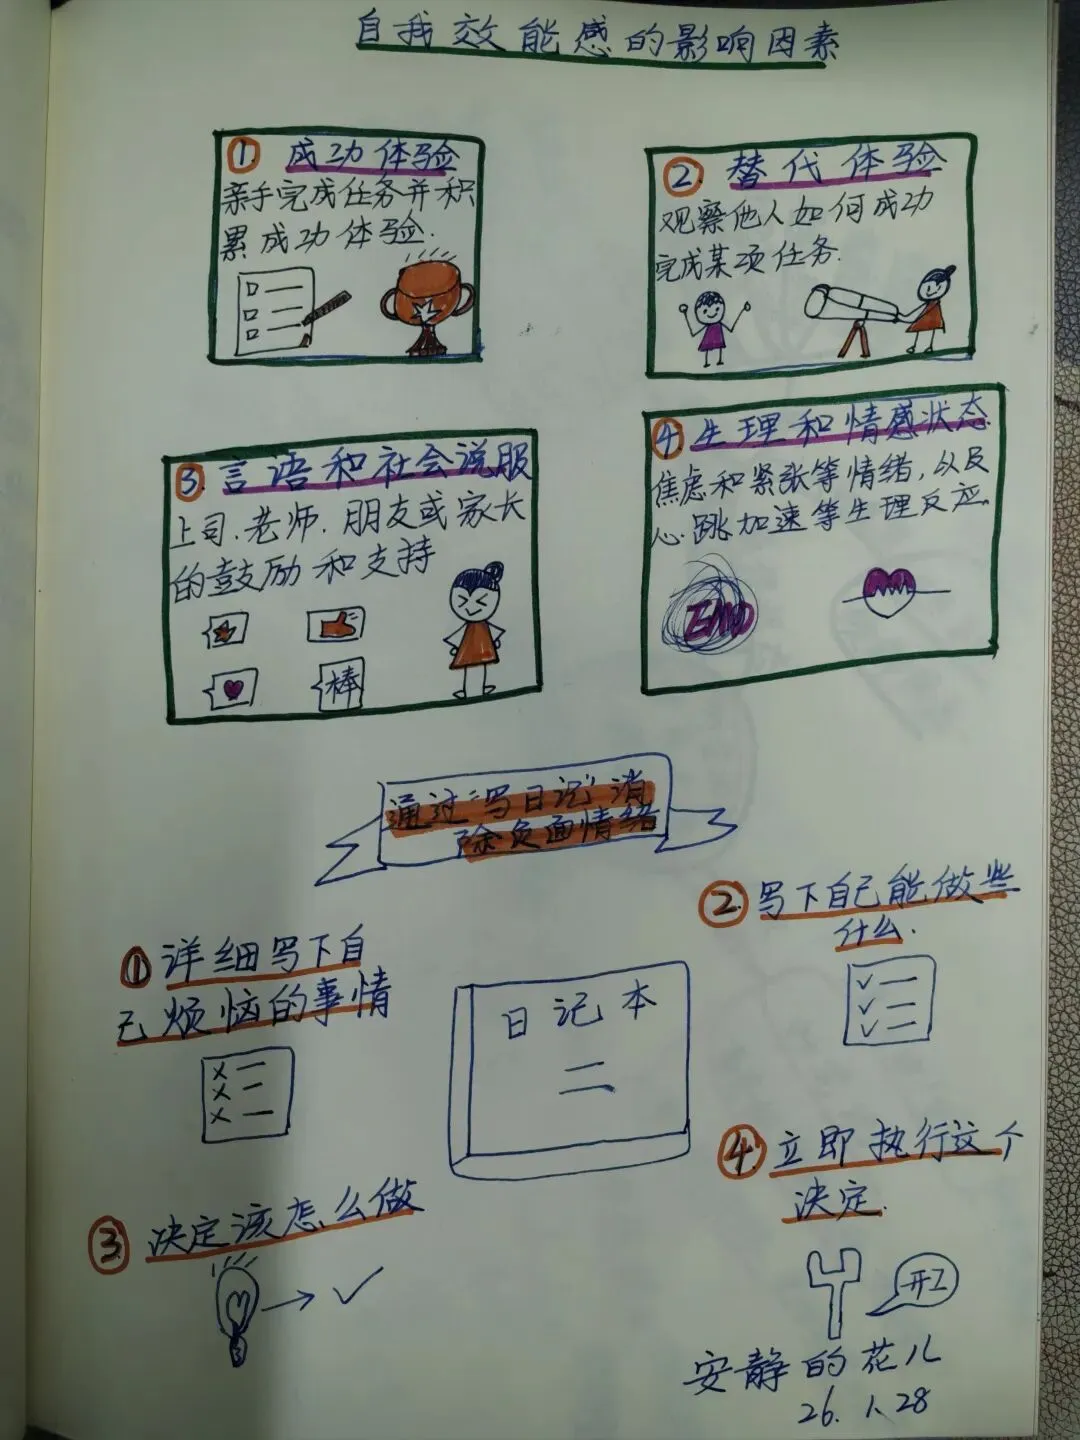 自我效能感的影响因素
①. 成功体验
亲手完成任务并积
累成功体验.
②. 替代体验
观察他人如何成功
完成某项任务.
③. 言语和社会说服
上司.老师.朋友或家长
的鼓励和支持
棒
④ 生理和情感状态
焦虑和紧张等情绪,以及
心跳加速等生理反应.
EMO
通过“写日记”消
除负面情绪
① 详细写下自
己烦恼的事情
②. 写下自己能做些
什么.
日记本
③. 决定该怎么做
④. 立即执行这个
决定.
开工
安静的花儿
26.1.28